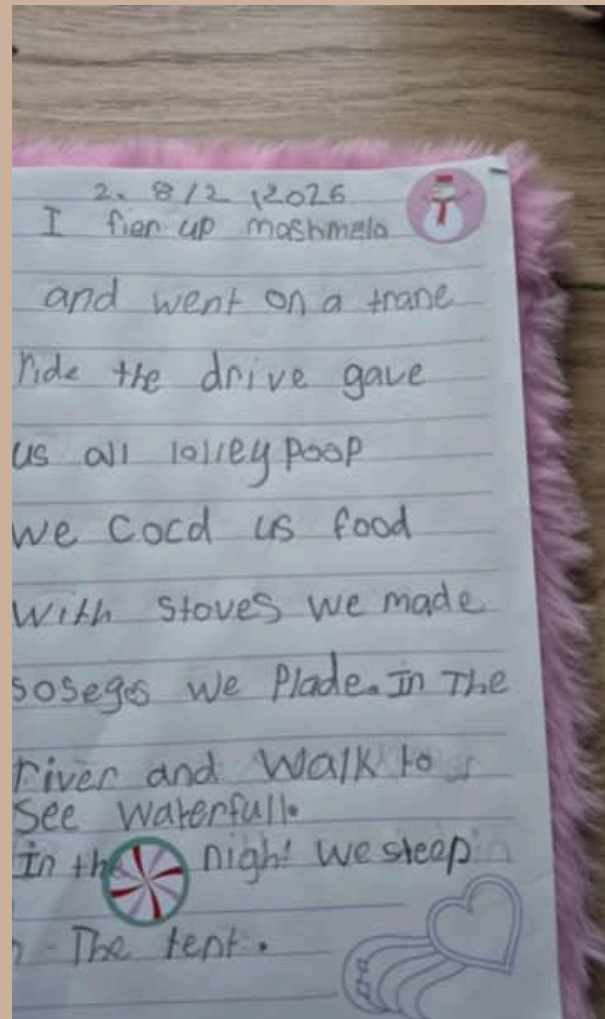 2. 8/2 12026
I fier up moshmelo
and went on a trane
ride the drive gave
us all lolley poop
we cocd us food
with stoves we made
soseges we Plade. In The
river and walk to
see waterfull.
in the night we sleep in
The tent.